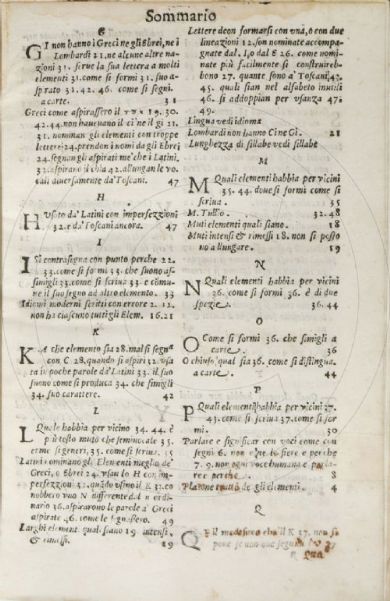 Sommario
G
GI non hanno i Greci ne gli Ebrei, ne i
Lombardi 21. ne alcune altre na-
zioni 31. serue la sua lettera a molti
elementi 31. come si formi 31. suo a-
spirato 32. 42. 46. come si segni.
a carte. 31
Greci come aspirassero il 19. 30.
42. 44. non haueuano il ci ne il gi 21.
31. nominan gli elementi con troppe
lettere 24. prendon i nomi da gli Ebrei
24. segnan gli aspirati me' che i Latini.
32. aspirano il 42. allungan le vo-
cali diuersamente da' Toscani. 47
H
H Vsato da' Latini con impersezzioni
32. e da' Toscani ancora. 47
I
I Si contrasegna con punto perche 22.
33. come si formi 33. che suono as-
simigli 23. come si scriua 33. e comu-
ne il suo segno ad altro elemento. 33
Idiomi moderni scritti con errore 2. 12.
non ha ciascuno tutti gli Elem. 16. 21
K
KA che elemento sia 28. mal si segna
con C 28. quando si aspiri 32. vsa
to in poche parole da' Latini 33. il suo
suono come si produca 34. che simigli
34. suo carattere. 42
L
L Quale habbia per vicino 34. 44. è
più tosto muto che seminocale 35.
erme segenere 35. come si scriua. 35
Latini nominano gli Elementi meglio de'
Greci, & Ebrei 24. vsan lo H con im-
perfezzioni 32. quãdo vsino il K 33. co
nobbero vno N differente dal n ordi-
nario 36. aspirarono le parole a' Greci
aspirate 46. come le segnassero. 49
Larghi elementi quali siano 18 intensi
& rimessi. 19
Lettere deon formarsi con vna, o con due
lineazioni 12. son nominate accompa-
gnate dal. I, o dal E 26. come nomi-
nate più facilmente si construireb-
bono 27. quante sono a' Toscani 43.
45. quali sian nel alfabeto inutili
46. si addoppian per vsanza 47.
49.
Lingua vedi idioma
Lombardi non hanno Cine Gi. 21
Lunghezza di sillabe vedi sillabe
M
M Quali elementi habbia per vicini
35. 44. doue si formi come si
scriua. 35
M. Tullio. 32. 48
Muti elementi quali siano. 18
Muti intensi & rimessi 18. non si posso
no allungare. 19
N
N Quali elementi habbia per vicini
36. come si formi 36. è di due
spezie. 36. 44
O
O Come si formi 36. che simigli a
carte. 36
O chiuso qual sia 36. come si distingua.
a carte 44
P
P Quali elementi habbia per vicini 27.
43. come si scriua 37. come si for-
mi. 30
Parlare e significar con voci come con
segni 6. non è ne si fiere e perche
7. 9. non ogni voce humana e parla-
re e perche. 8
Platone muta de gli elementi. 4
Q
Q il medesimo che il K 37. non si
pone se non que seguita
Qua